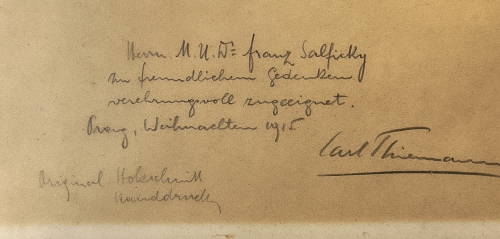 Herrn M. U. Dr. Franz Salficky
zu freundlichem Gedenken
verehrungsvoll zugeeignet.
Prag, Weihnachten 1915
Carl Thiemann
Original Holzschnitt
Handdruck